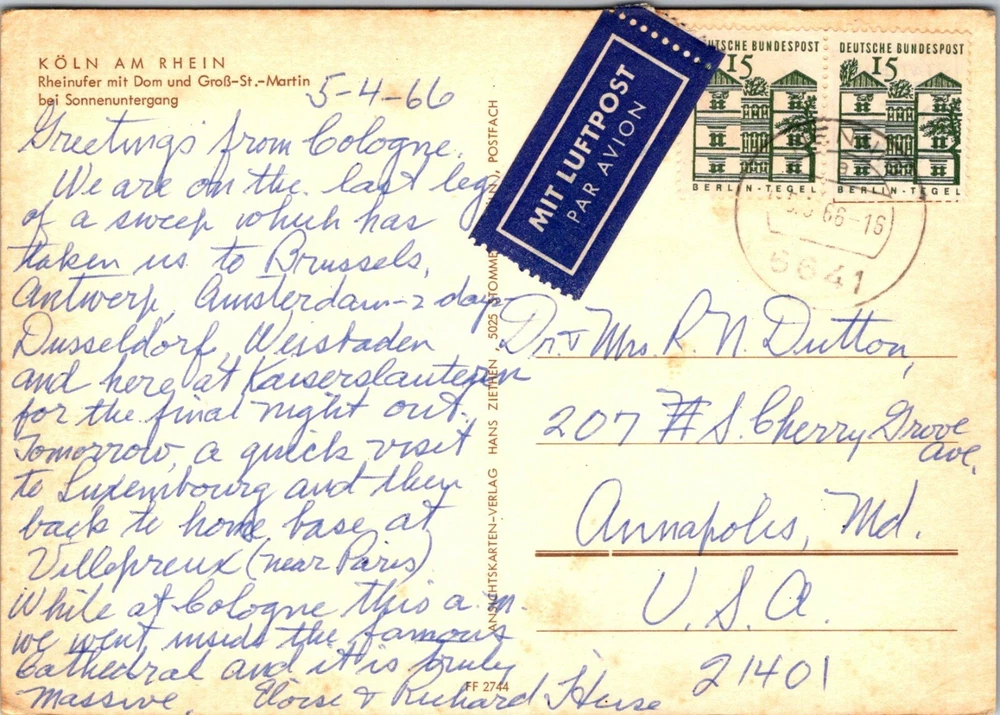 KÖLN AM RHEIN
Rheinufer mit Dom und Groß-St.-Martin
bei Sonnenuntergang
5-4-66
Greetings from Cologne.
We are on the last leg
of a sweep which has
taken us to Brussels,
Antwerp, Amsterdam-2 days
Dusseldorf, Weisbaden
and here at Kaiserslautern
for the final night out.
Tomorrow, a quick visit
to Luxembourg and then
back to home base at
Villepreux (near Paris)
While at Cologne this a.m.
we went inside the famous
Cathedral and it is truly
massive. Eloise & Richard
ANSICHTSKARTEN-VERLAG HANS ZIETHEN, 5025 STOMME POSTFACH
FF 2744
MIT LUFTPOST
PAR AVION
UTSCHE BUNDESPOST
15
BERLIN-TEGEL
DEUTSCHE BUNDESPOST
15
BERLIN-TEGEL
66-16
6641
Dr. & Mrs. R. N. Dutton,
207 S. Cherry Grove
Ave.
Annapolis, Md.
U.S.A.
21401